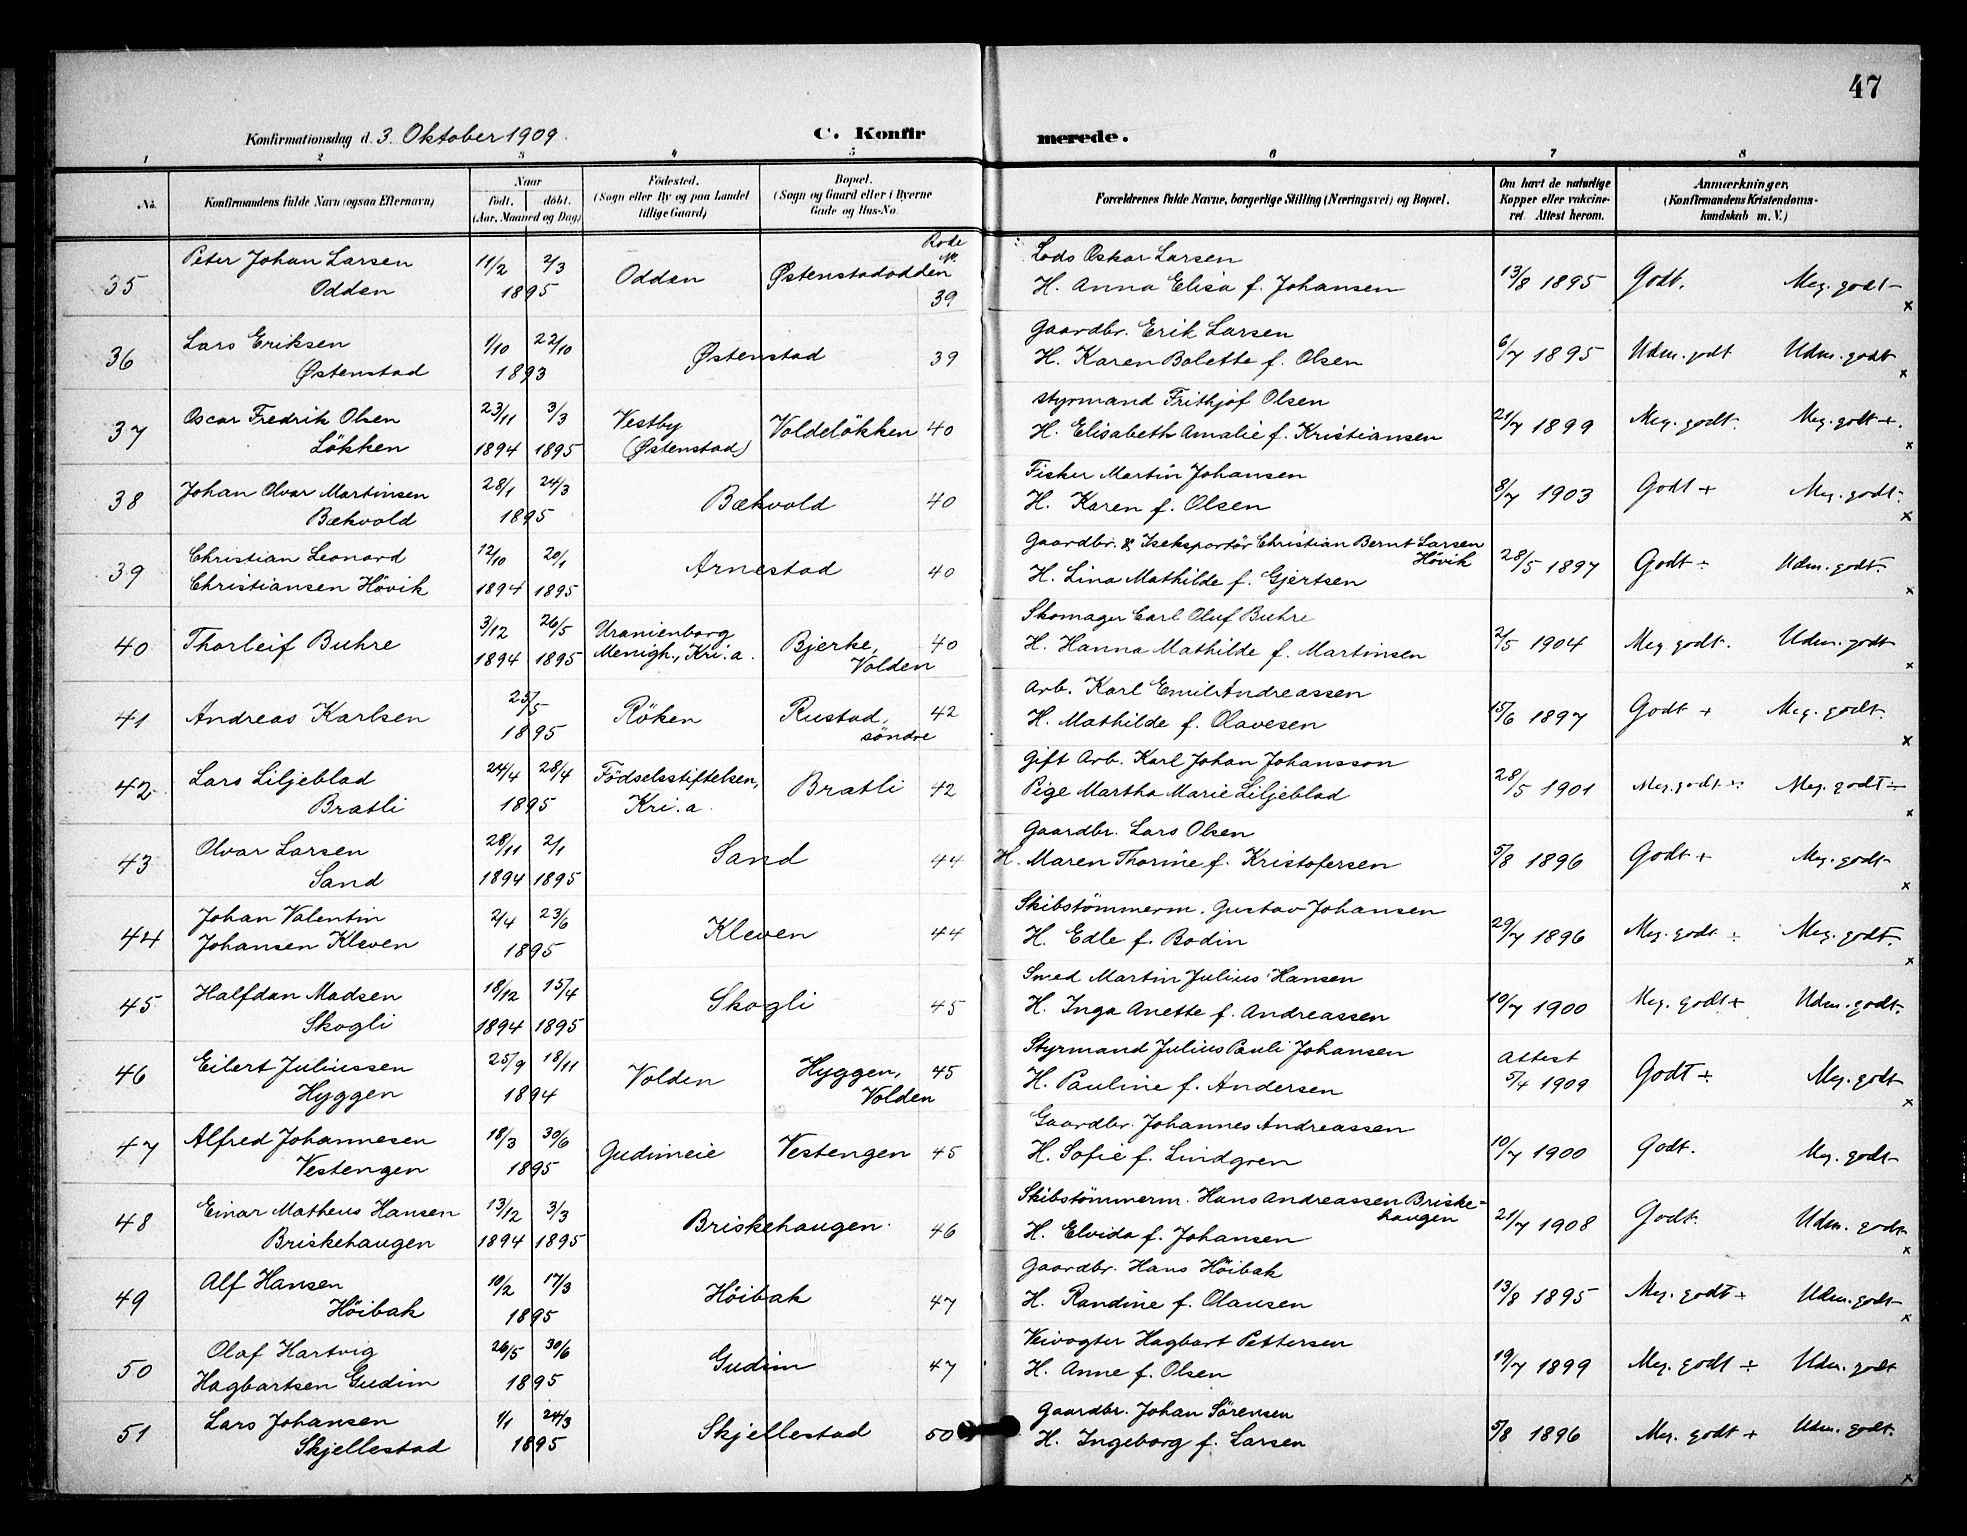 47
Konfirmationsdag d. 3. Oktober 1909.
C. Konfir merede.
1 2 3 4 5 6 7 8
No. Konfirmandens fulde Navn (ogsaa Efternavn) Naar født. døbt. (Aar, Maaned og Dag) Fødested. (Sogn eller By og paa Landet tillige Gaard) Bopæl. (Sogn og Gaard eller i Byerne Gade og Hus-No. Forældrenes fulde Navne, borgerlige Stilling (Næringsvei) og Bopæl. Om havt de naturlige Kopper eller vakcineret. Attest herom. Anmærkninger. (Konfirmandens Kristendomskundskab m. V.)
Rode No.
35 Peter Johan Larsen Odden 11/2 2/3 1895 Odden Østenstadodden 39 Lods Oskar Larsen H. Anna Elisa f. Johansen 13/8 1895 Godt. Meg. godt x
36 Lars Eriksen Østenstad 1/10 22/10 1893 Østenstad 39 Gaardbr. Erik Larsen H. Karen Bolette f. Olsen 6/7 1895 Udm. godt Udm. godt x
37 Oscar Fredrik Olsen Løkken 23/11 1894 3/3 1895 Vestby (Østenstad) Voldeløkken 40 Styrmand Frithjof Olsen H. Elisabeth Amalie f. Kristiansen 21/7 1899 Meg. godt. Meg. godt +. x
38 Johan Olvar Martinsen Bækvold 28/1 24/3 1895 Bækvold 40 Fisker Martin Johansen H. Karen f. Olsen 8/7 1903 Godt + Meg. godt. x
39 Christian Leonard Christiansen Høvik 12/10 1894 20/1 1895 Arnestad 40 Gaardbr. & Iseksportør Christian Bernt Larsen Høvik H. Lina Mathilde f. Gjertsen 28/5 1897 Godt ÷ Udm. godt. x
40 Thorleif Buhre 3/12 1894 26/5 1895 Uranienborg Menigh., Kri.a. Bjerke, Volden 40 Skomager Carl Oluf Buhre H. Hanna Mathilde f. Martinsen 2/5 1904 Meg. godt. Udm. godt x
41 Andreas Karlsen 25/5 1895 Røken Rustad, søndre 42 Arb. Karl Emil Andreassen H. Mathilde f. Olavesen 15/6 1897 Godt + Meg. godt. x
42 Lars Liljeblad Bratli 24/4 28/4 1895 Fødselsstiftelsen, Kri.a. Bratli 42 Gift Arb. Karl Johan Johansson Pige Martha Marie Liljeblad 28/5 1901 Meg. godt ÷ Meg. godt ÷ x
43 Olvar Larsen Sand 28/11 1894 2/1 1895 Sand 44 Gaardbr. Lars Olsen H. Maren Thorine f. Kristofersen 5/8 1896 Godt + Meg. godt x
44 Johan Valentin Johansen Kleven 2/4 23/6 1895 Kleven 44 Skibstømmerm. Gustav Johansen H. Edle f. Bodin 29/7 1896 Meg. godt ÷ Meg. godt. x
45 Halfdan Madsen Skogli 18/12 1894 15/4 1895 Skogli 45 Smed Martin Julius Hansen H. Inga Anette f. Andreassen 10/7 1900 Meg. godt + Udm. godt.
46 Eilert Juliussen Hyggen 25/9 18/11 1894 Volden Hyggen, Volden 45 Styrmand Julius Pauli Johansen H. Pauline f. Andersen Attest 5/4 1909 Godt ÷ Meg. godt x
47 Alfred Johannesen Vestengen 18/3 30/6 1895 Gudimeie Vestengen 45 Gaardbr. Johannes Andreassen H. Sofie f. Lindgren 10/7 1900 Godt. Meg. godt
48 Einar Matheus Hansen Briskehaugen 13/12 1894 3/3 1895 Briskehaugen. 46 Skibstømmerm. Hans Andreassen Briskehaugen H. Elvida f. Johansen 21/7 1908 Godt. Udm. godt x
49 Alf Hansen Höibak 10/2 17/3 1895 Höibak 47 Gaardbr. Hans Höibak H. Randine f. Olausen 13/8 1895 Meg. godt ÷ Udm. godt x
50 Olaf Hartvig Hagbartsen Gudim 26/5 30/6 1895 Gudim 47 Veivogter Hagbart Pettersen H. Anne f. Olsen 19/7 1899 Meg. godt ÷ Udm. godt
51 Lars Johansen Skjellestad 1/1 24/3 1895 Skjellestad 50 Gaardbr. Johan Sörensen H. Ingeborg f. Larsen 5/8 1896 Meg. godt + Udm. godt. x